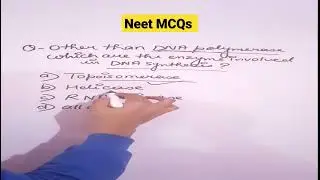 Neet MCQs
Q- Other than DNA polymerase
which are the enzyme involved
in DNA synthesis?
a) Topoisomerase
b) Helicase
c) RNA
d) all